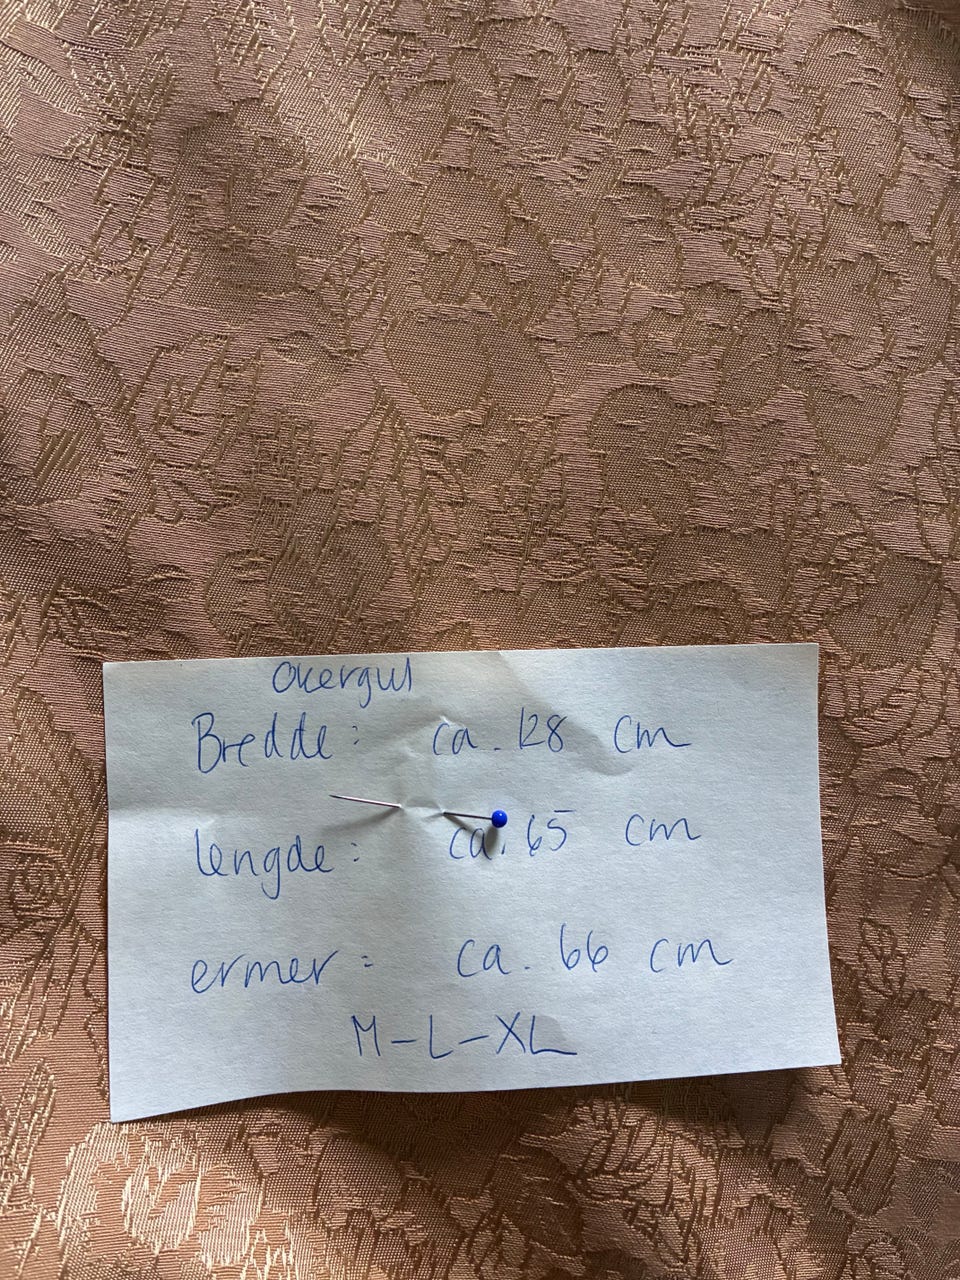 Okergul
Bredde: ca. 128 cm
lengde: ca. 65 cm
ermer: ca. 66 cm
M-L-XL